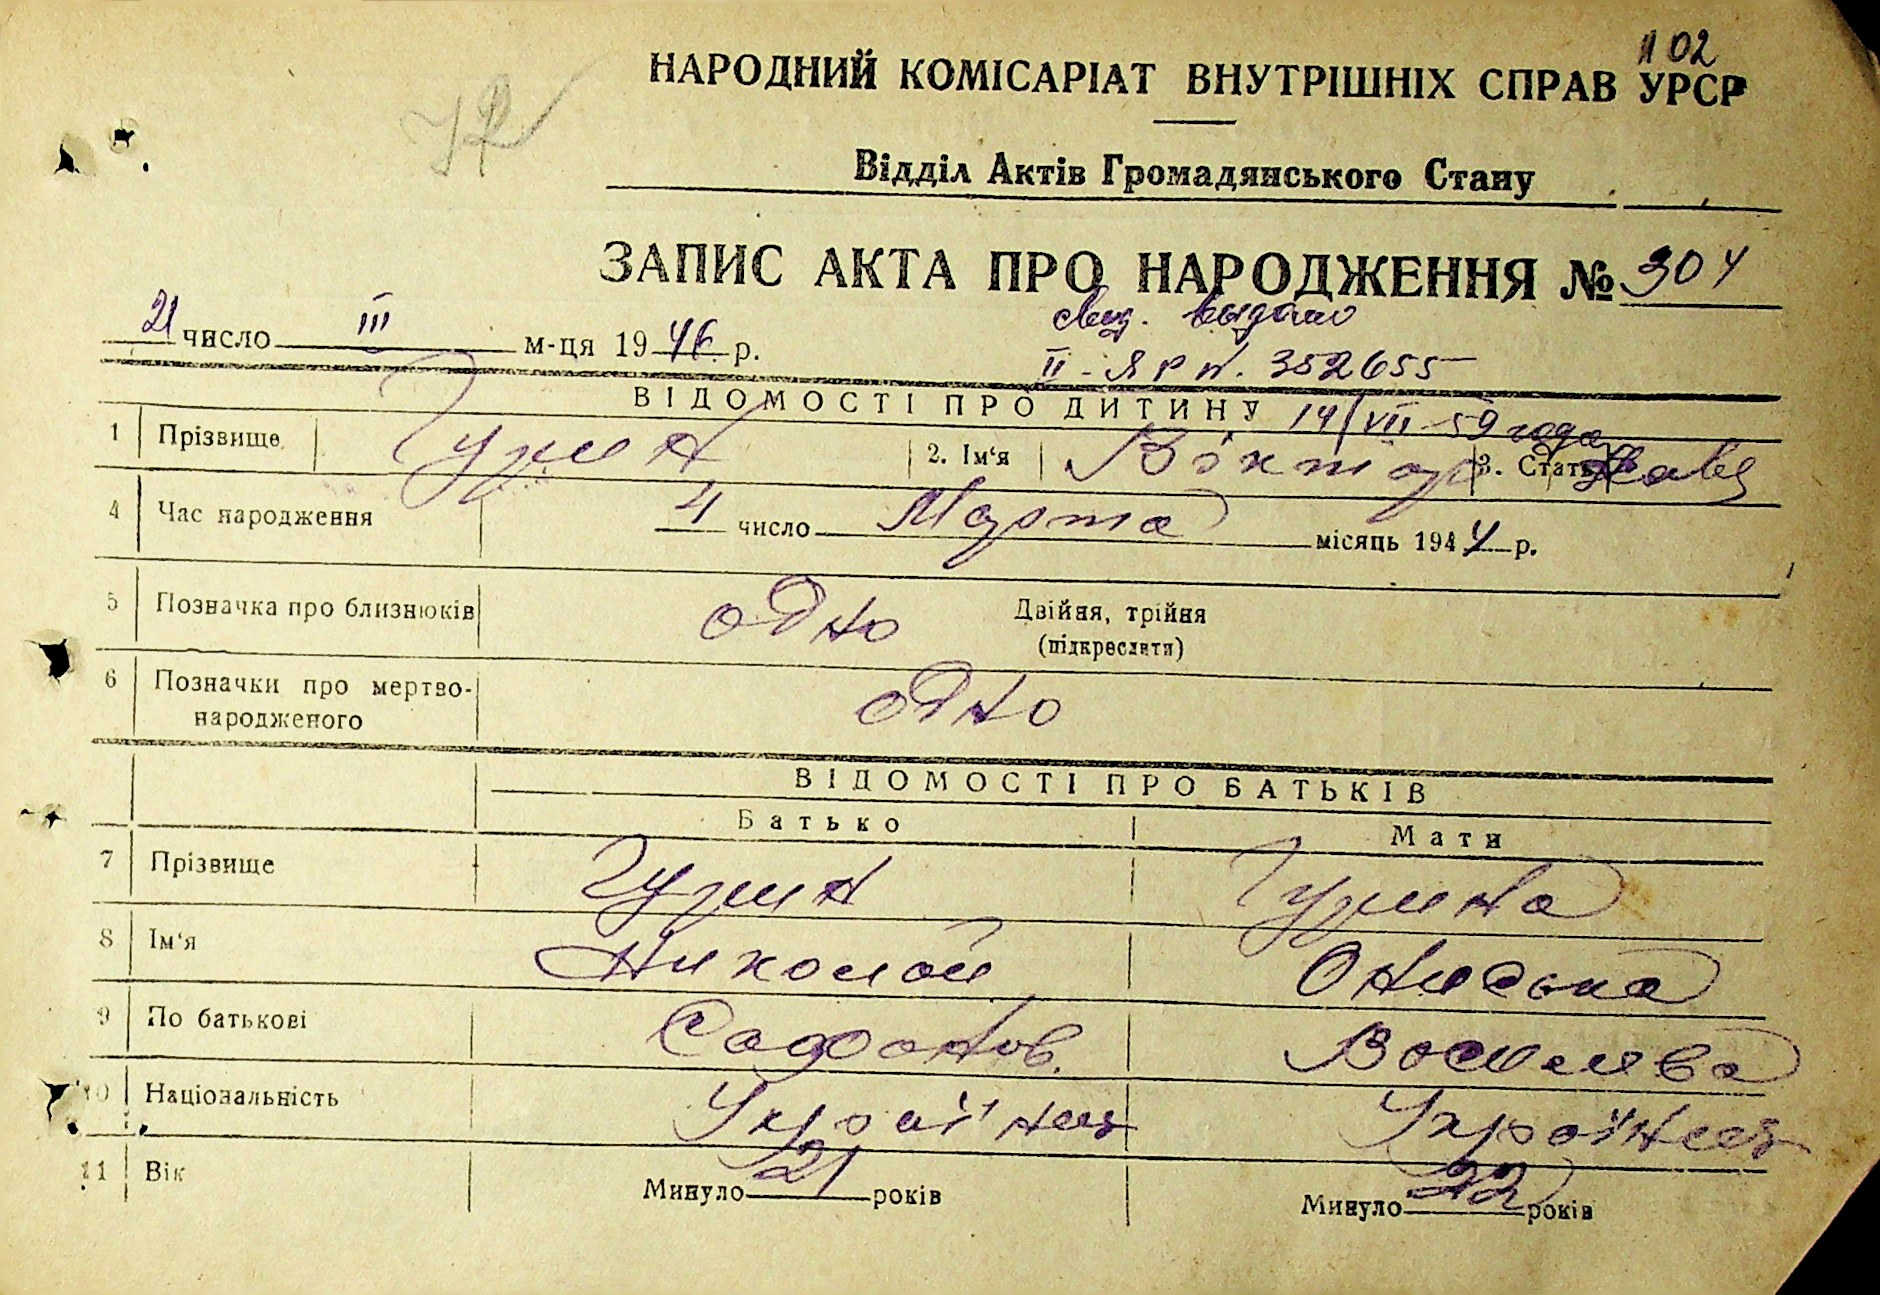 102
НАРОДНИЙ КОМІСАРІАТ ВНУТРІШНІХ СПРАВ УРСР
Відділ Актів Громадянського Стану
ЗАПИС АКТА ПРО НАРОДЖЕННЯ № 304
21 число III м-ця 1946 р.
свид. выдано
II-ЯР N. 352655
ВІДОМОСТІ ПРО ДИТИНУ 14/VII-59 года
1 Прізвище Гурин 2. Ім‘я Віктор 3. Стать
4 Час народження 4 число Марта місяць 1944 р.
5 Позначка про близнюків одно Двійня, трійня
(підкреслити)
6 Позначки про мертво-
народженого одно
ВІДОМОСТІ ПРО БАТЬКІВ
Батько Мати
7 Прізвище Гурин Гурина
8 Ім‘я Николай Ониська
9 По батькові Сафонов. Василева
10 Національність Українец Українец
11 Вік Минуло 21 років Минуло 22 років